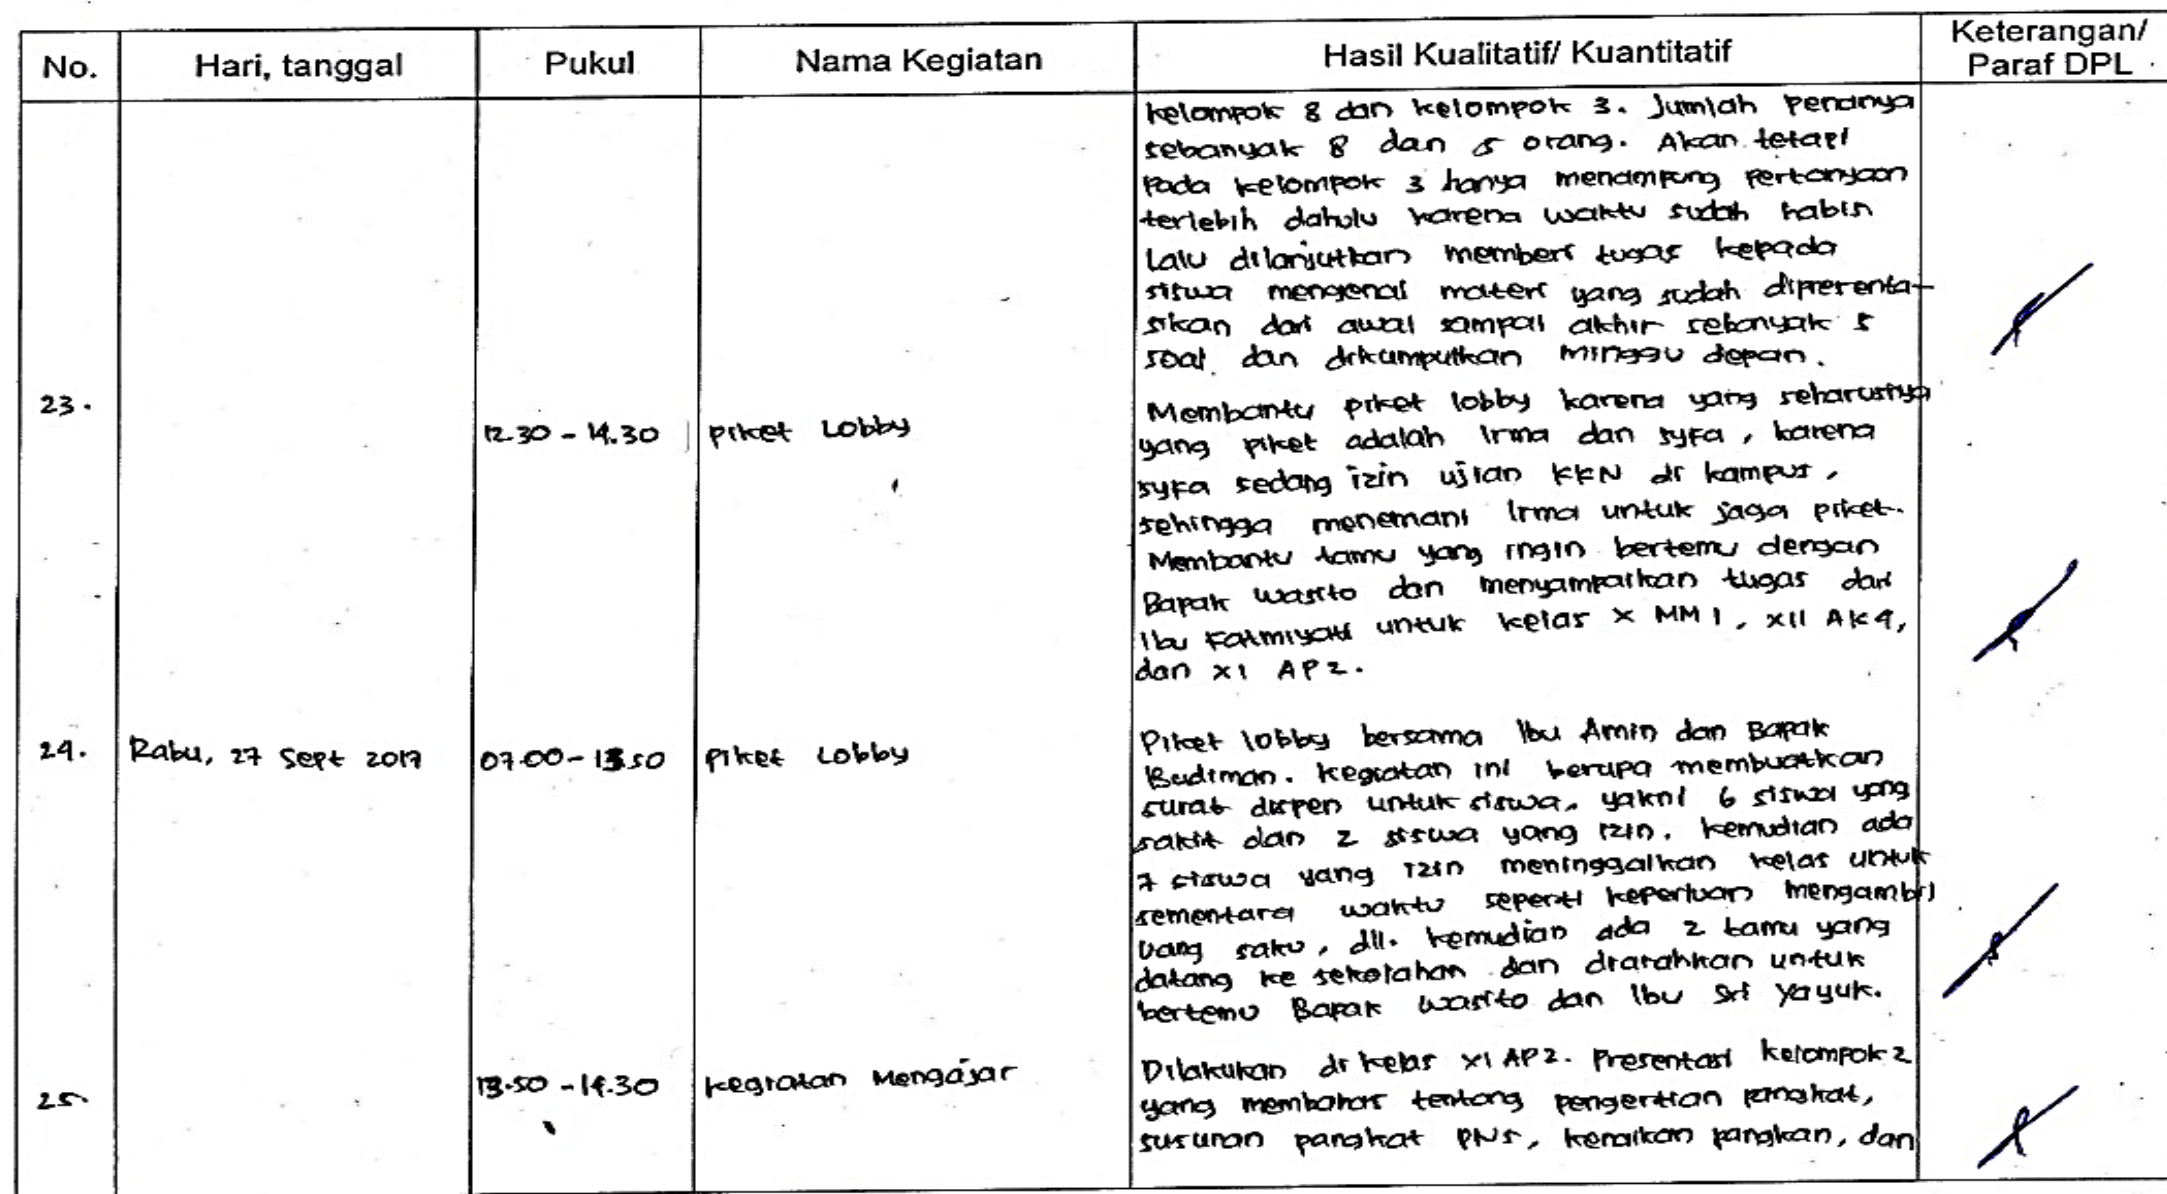 No. Hari, tanggal Pukul Nama Kegiatan Hasil Kualitatif/ Kuantitatif Keterangan/ Paraf DPL
kelompok 8 dan kelompok 3. Jumlah penanya
sebanyak 8 dan 5 orang. Akan tetapi
pada kelompok 3 hanya menampung pertanyaan
terlebih dahulu karena waktu sudah habis
Lalu dilanjutkan memberi tugas kepada
siswa mengenai materi yang sudah dipresenta-
sikan dari awal sampai akhir sebanyak 5
soal dan dikumpulkan minggu depan.
23. 12.30 - 14.30 piket Lobby
Membantu piket lobby karena yang seharusnya
yang piket adalah Irma dan syfa, karena
syfa sedang izin ujian KKN di kampus,
sehingga menemani Irma untuk jaga piket.
Membantu tamu yang ingin bertemu dengan
Bapak Wasito dan menyampaikan tugas dari
Ibu Fatmiyati untuk kelas X MM 1, XII AK 4,
dan XI AP 2.
24. Rabu, 27 Sept 2017 07.00 - 13.50 piket Lobby
Piket lobby bersama Ibu Amin dan Bapak
Budiman. Kegiatan ini berupa membuatkan
surat dispen untuk siswa, yakni 6 siswa yang
sakit dan 2 siswa yang izin. Kemudian ada
7 siswa yang izin meninggalkan kelas untuk
sementara waktu seperti keperluan mengambil
uang saku, dll. Kemudian ada 2 tamu yang
datang ke sekolahan dan diarahkan untuk
bertemu Bapak Wasito dan Ibu Sri Yayuk.
25. 13.50 - 14.30 Kegiatan Mengajar
Dilakukan di kelas XI AP 2. Presentasi kelompok 2
yang membahas tentang pengertian pangkat,
susunan pangkat PNS, kenaikan pangkan, dan